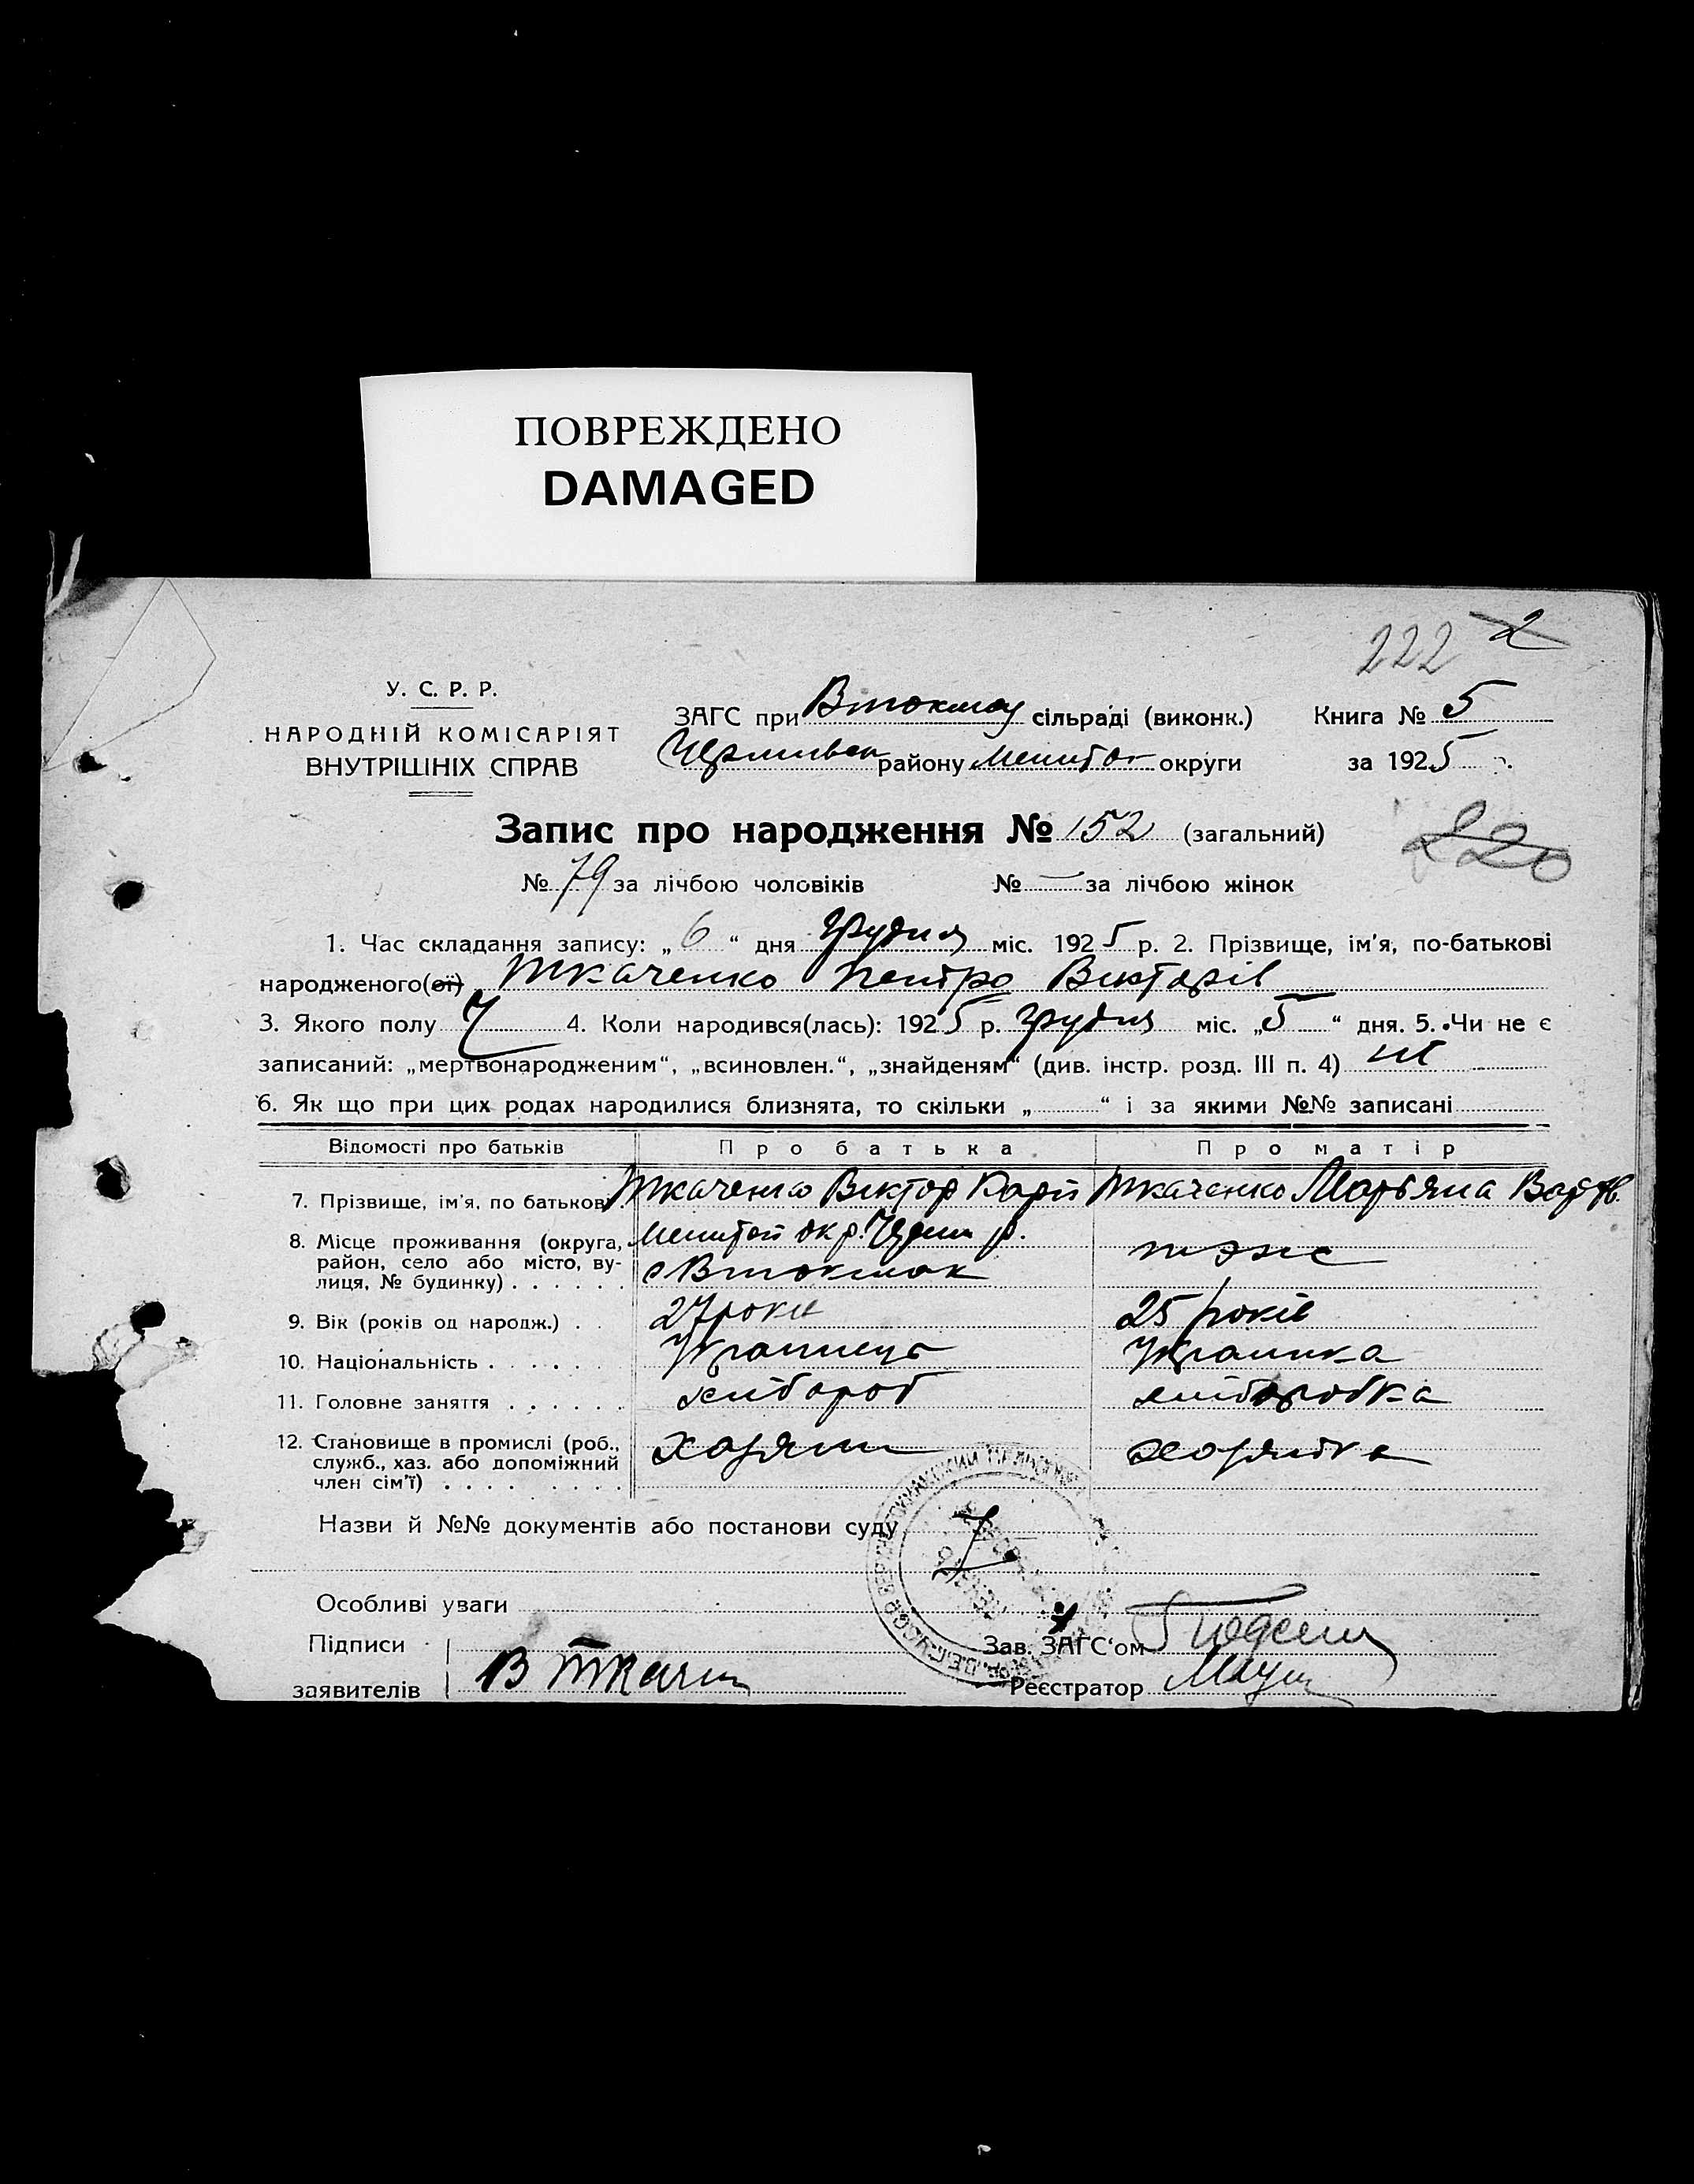 ПОВРЕЖДЕНО
DAMAGED
222 2
У. С. Р. Р.
НАРОДНІЙ КОМІСАРІЯТ
ВНУТРІШНІХ СПРАВ
ЗАГС при Втокмац сільраді (виконк.) Книга № 5
району округи за 1925 р.
Запис про народження № 152 (загальний)
220
№ 79 за лічбою чоловіків № — за лічбою жінок
1. Час складання запису: „6“ дня грудня міс. 1925 р. 2. Прізвище, ім'я, по-батькові
народженого(ої) Ткаченко Петро Вікторів
3. Якого полу Ч 4. Коли народився(лась): 1925 р. грудня міс. „5“ дня. 5. Чи не є
записаний: „мертвонародженим“, „всиновлен.“, „знайденям“ (див. інстр. розд. III п. 4) ні
6. Як що при цих родах народилися близнята, то скільки „ “ і за якими №№ записані
Відомості про батьків Про батька Про матір
7. Прізвище, ім'я, по батькові Ткаченко Віктор Карп Ткаченко Марьяна
8. Місце проживання (округа, район, село або місто, вулиця, № будинку) окр. р.
с Втокмак тэже
9. Вік (років од народж.) 27 років 25 років
10. Національність Українець Українка
11. Головне заняття хлібороб хліборобка
12. Становище в промислі (роб., служб., хаз. або допоміжний член сім'ї) хозяїн хозяйка
Назви й №№ документів або постанови суду
Особливі уваги
Підписи Зав. ЗАГС'ом
заявителів В Ткачен Реєстратор